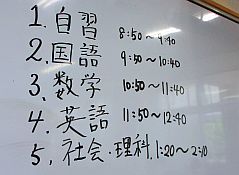 1. 自習 8:50～9:40
2. 国語 9:50～10:40
3. 数学 10:50～11:40
4. 英語 11:50～12:40
5. 社会・理科 1:20～2:10